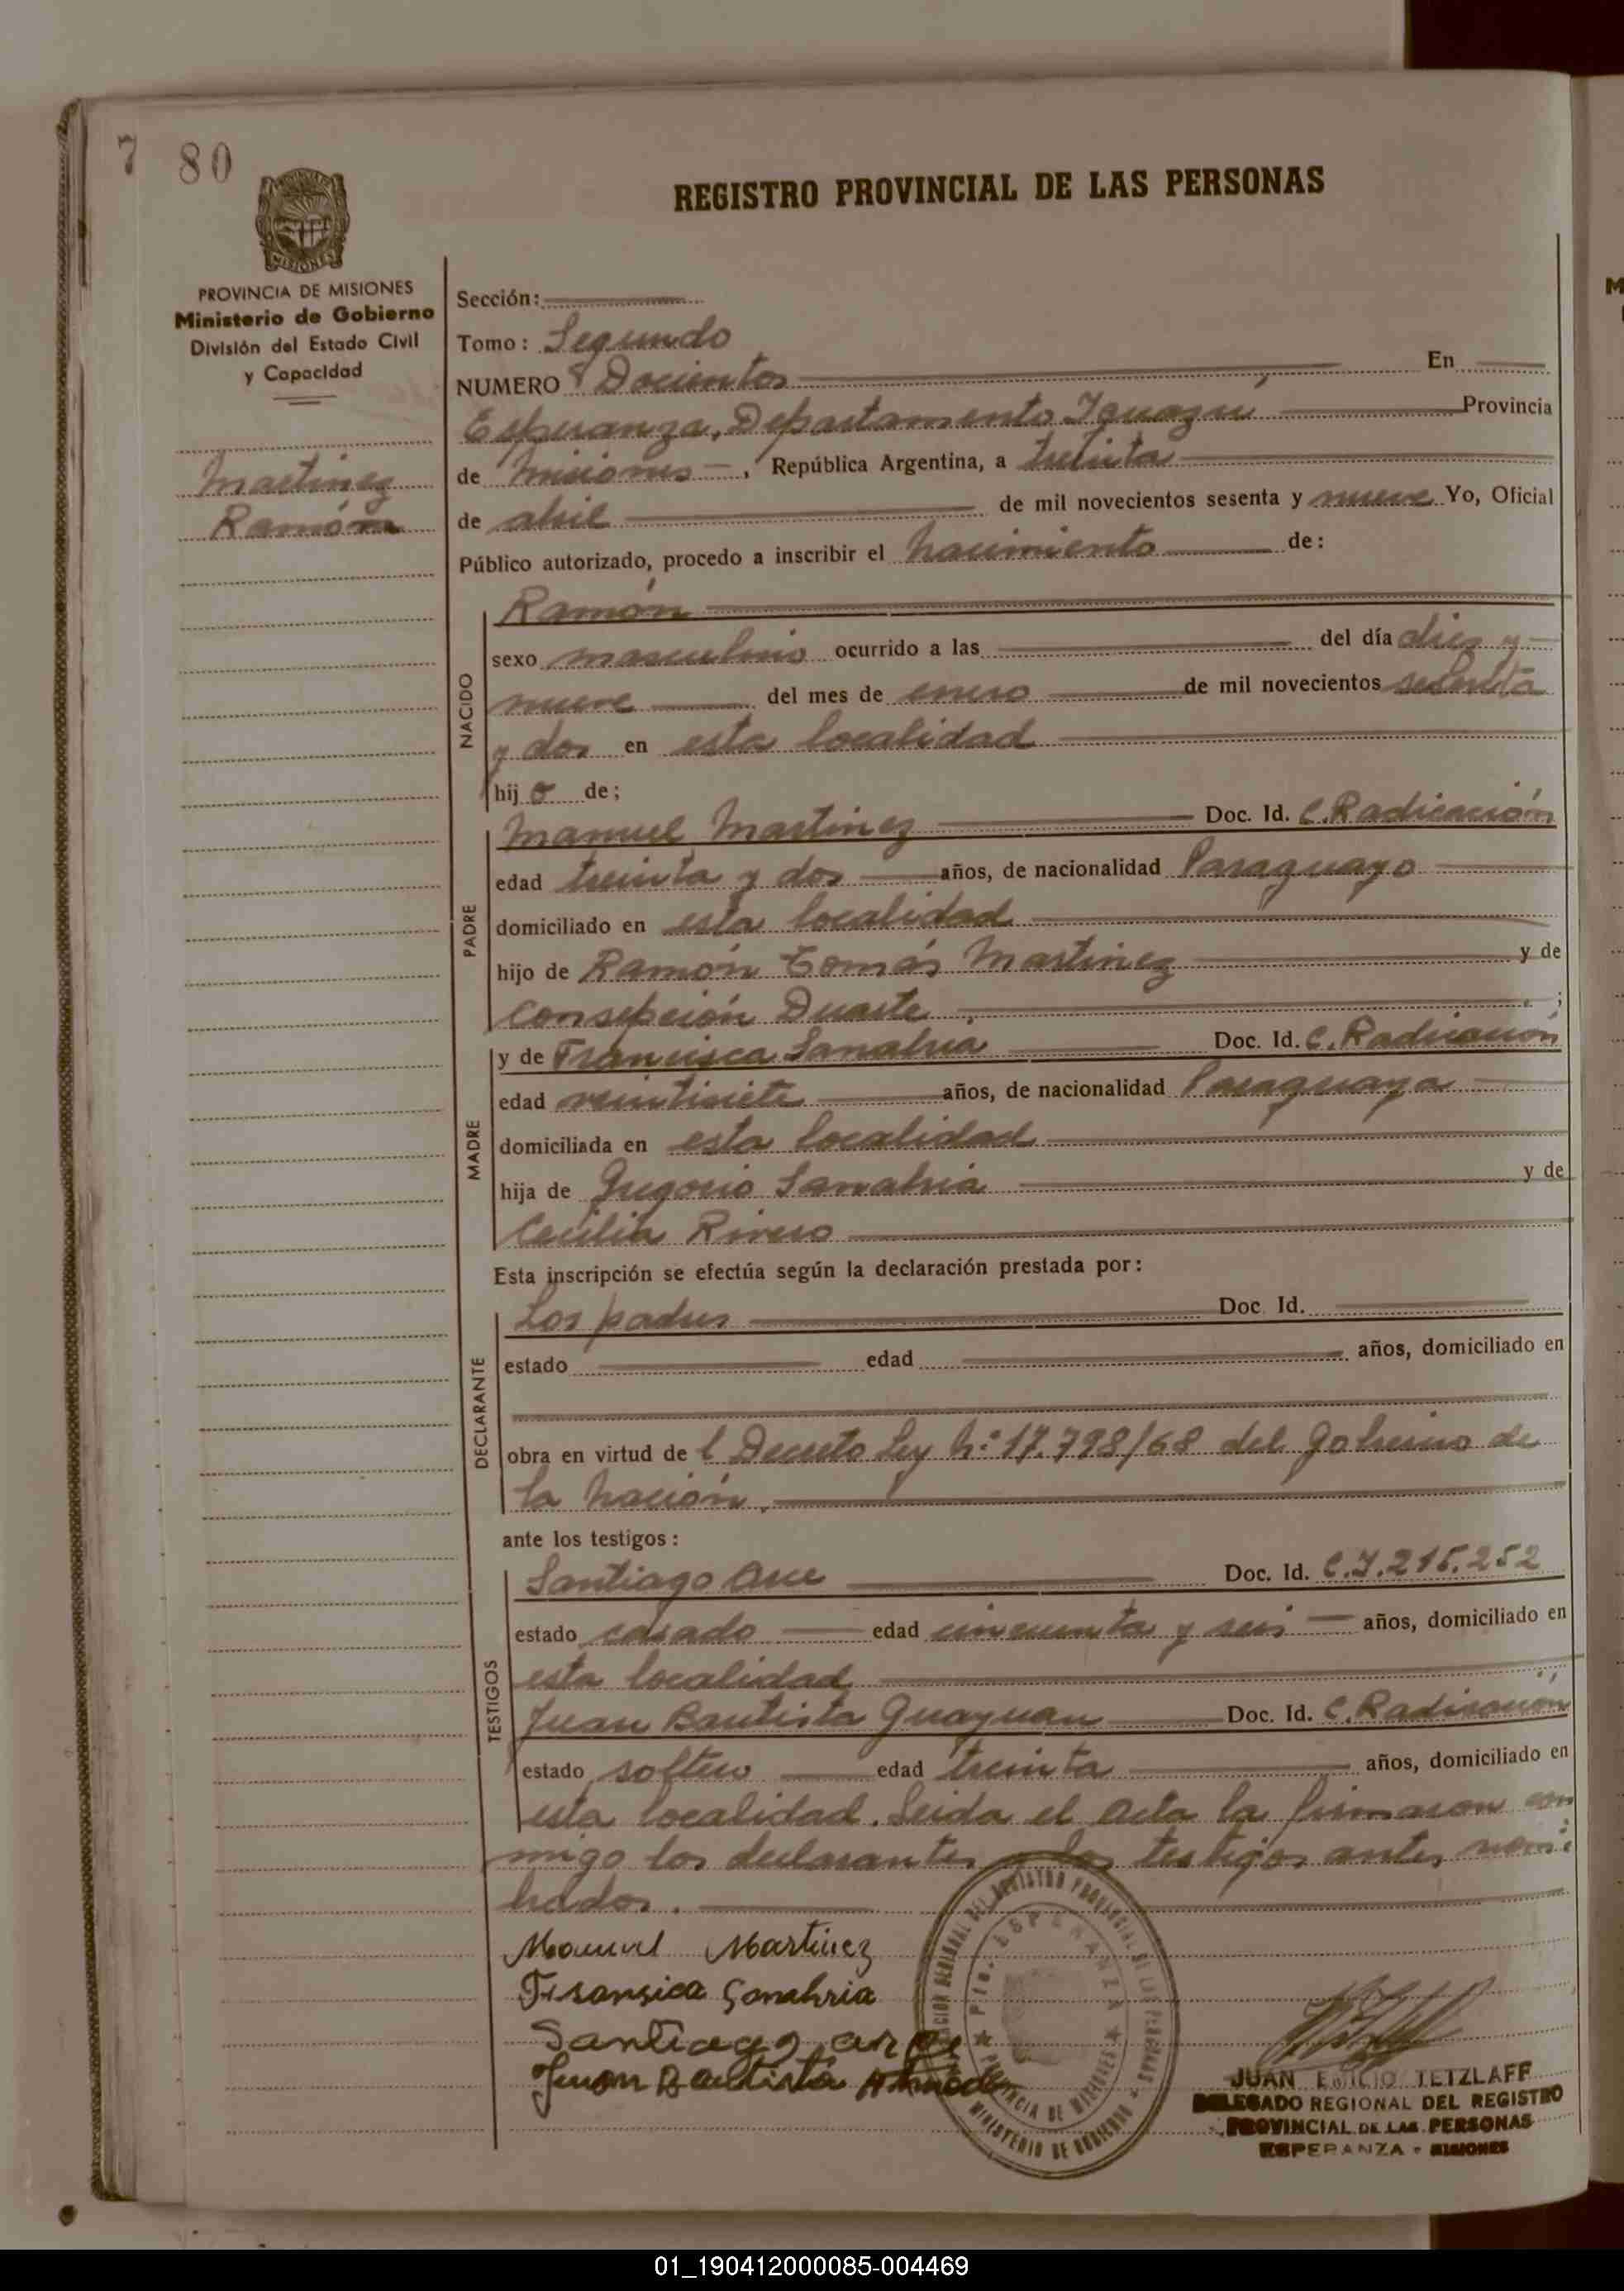 7 80
REGISTRO PROVINCIAL DE LAS PERSONAS
MISIONES
PROVINCIA DE MISIONES
Ministerio de Gobierno
División del Estado Civil
y Capacidad
Martinez
Ramón
Sección:
Tomo: Segundo
NUMERO Docientos En
Esperanza, Departamento Iguazu Provincia
de Misiones, República Argentina, a treinta
de abril de mil novecientos sesenta y nueve Yo, Oficial
Público autorizado, procedo a inscribir el nacimiento de:
NACIDO
Ramón
sexo masculino ocurrido a las del día dies y
nueve del mes de enero de mil novecientos
y dos en esta localidad
hijo de;
PADRE
Manuel Martinez Doc. Id. C. Radicación
edad treinta y dos años, de nacionalidad Paraguayo
domiciliado en esta localidad
hijo de Ramón Tomás Martinez y de
Consepción Duarte ;
MADRE
y de Francisca Sanabria Doc. Id. C. Radicación
edad veintisiete años, de nacionalidad Paraguaya
domiciliada en esta localidad
hija de Gregorio Sanabria y de
Cecilia Rivero
Esta inscripción se efectúa según la declaración prestada por:
DECLARANTE
Los padres Doc. Id.
estado edad años, domiciliado en
obra en virtud de l Decreto Ley Nº 17.798/68 del Gobierno de
la Nación.
ante los testigos:
TESTIGOS
Santiago Arce Doc. Id. C.I. 215.252
estado casado edad cincuenta y seis años, domiciliado en
esta localidad
Juan Bautista Doc. Id. C. Radicación
estado soltero edad treinta años, domiciliado en
esta localidad. Leida el acta la firmaron con
migo los declarantes y los testigos antes nom
brados.
Manuel Martinez
Fransica Sanabria
Santiago arce
Juan Bautista
ESPERANZA
PROVINCIA DE MISIONES
MINISTERIO DE GOBIERNO
JUAN EMILIO TETZLAFF
DELEGADO REGIONAL DEL REGISTRO
PROVINCIAL DE LAS PERSONAS
ESPERANZA - MISIONES
01_190412000085-004469